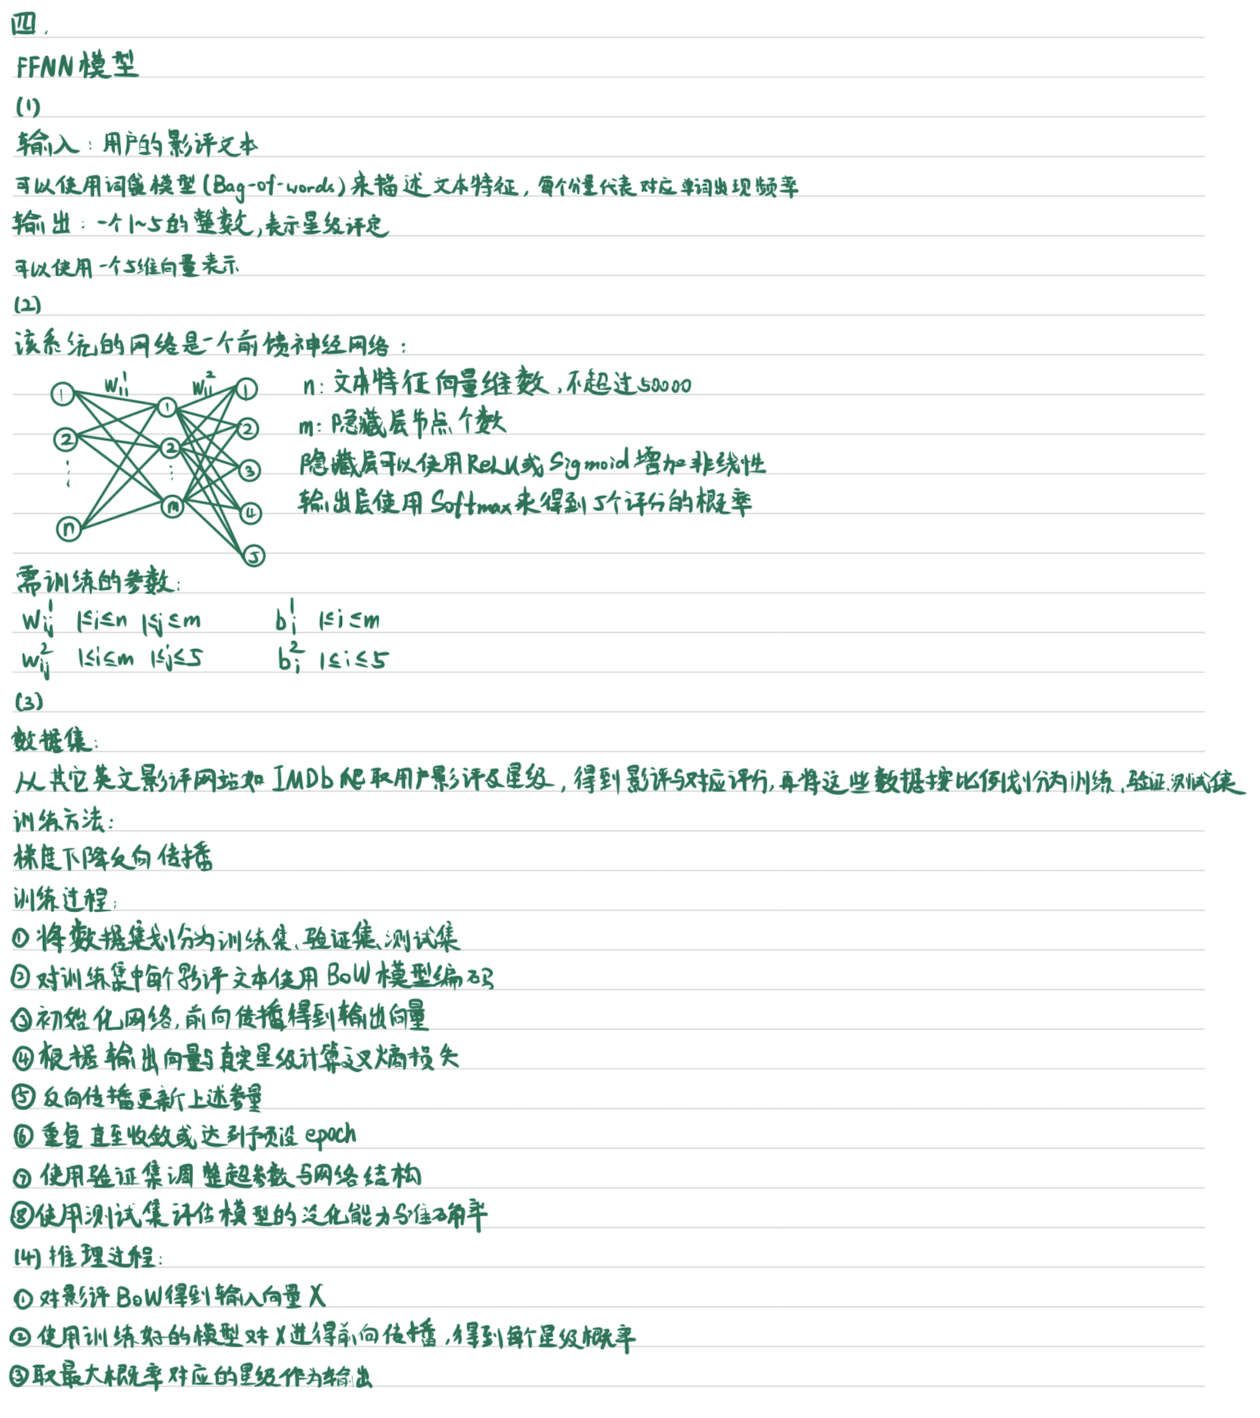 四.
FFNN模型
(1)
输入:用户的影评文本
可以使用词袋模型(Bag-of-words)来描述文本特征,每个分量代表对应单词出现频率
输出:一个1~5的整数,表示星级评定
可以使用一个5维向量表示
(2)
该系统的网络是一个前馈神经网络:
① W¹₁₁ ① W²₁₁ ①
② ② ②
⋮ ⋮ ③
ⓝ ⓜ ④
⑤
n:文本特征向量维数,不超过50000
m:隐藏层节点个数
隐藏层可以使用ReLU或Sigmoid增加非线性
输出层使用Softmax来得到5个评分的概率
需训练的参数:
W¹ᵢⱼ 1≤i≤n 1≤j≤m b¹ᵢ 1≤i≤m
W²ᵢⱼ 1≤i≤m 1≤j≤5 b²ᵢ 1≤i≤5
(3)
数据集:
从其它英文影评网站如IMDb爬取用户影评及星级,得到影评与对应评分,再将这些数据按比例划分为训练、验证、测试集
训练方法:
梯度下降反向传播
训练过程:
①将数据集划分为训练集、验证集、测试集
②对训练集中每个影评文本使用BoW模型编码
③初始化网络,前向传播得到输出向量
④根据输出向量与真实星级计算交叉熵损失
⑤反向传播更新上述参量
⑥重复直至收敛或达到预设epoch
⑦使用验证集调整超参数与网络结构
⑧使用测试集评估模型的泛化能力与准确率
(4)推理过程:
①对影评BoW得到输入向量X
②使用训练好的模型对X进行前向传播,得到每个星级概率
③取最大概率对应的星级作为输出